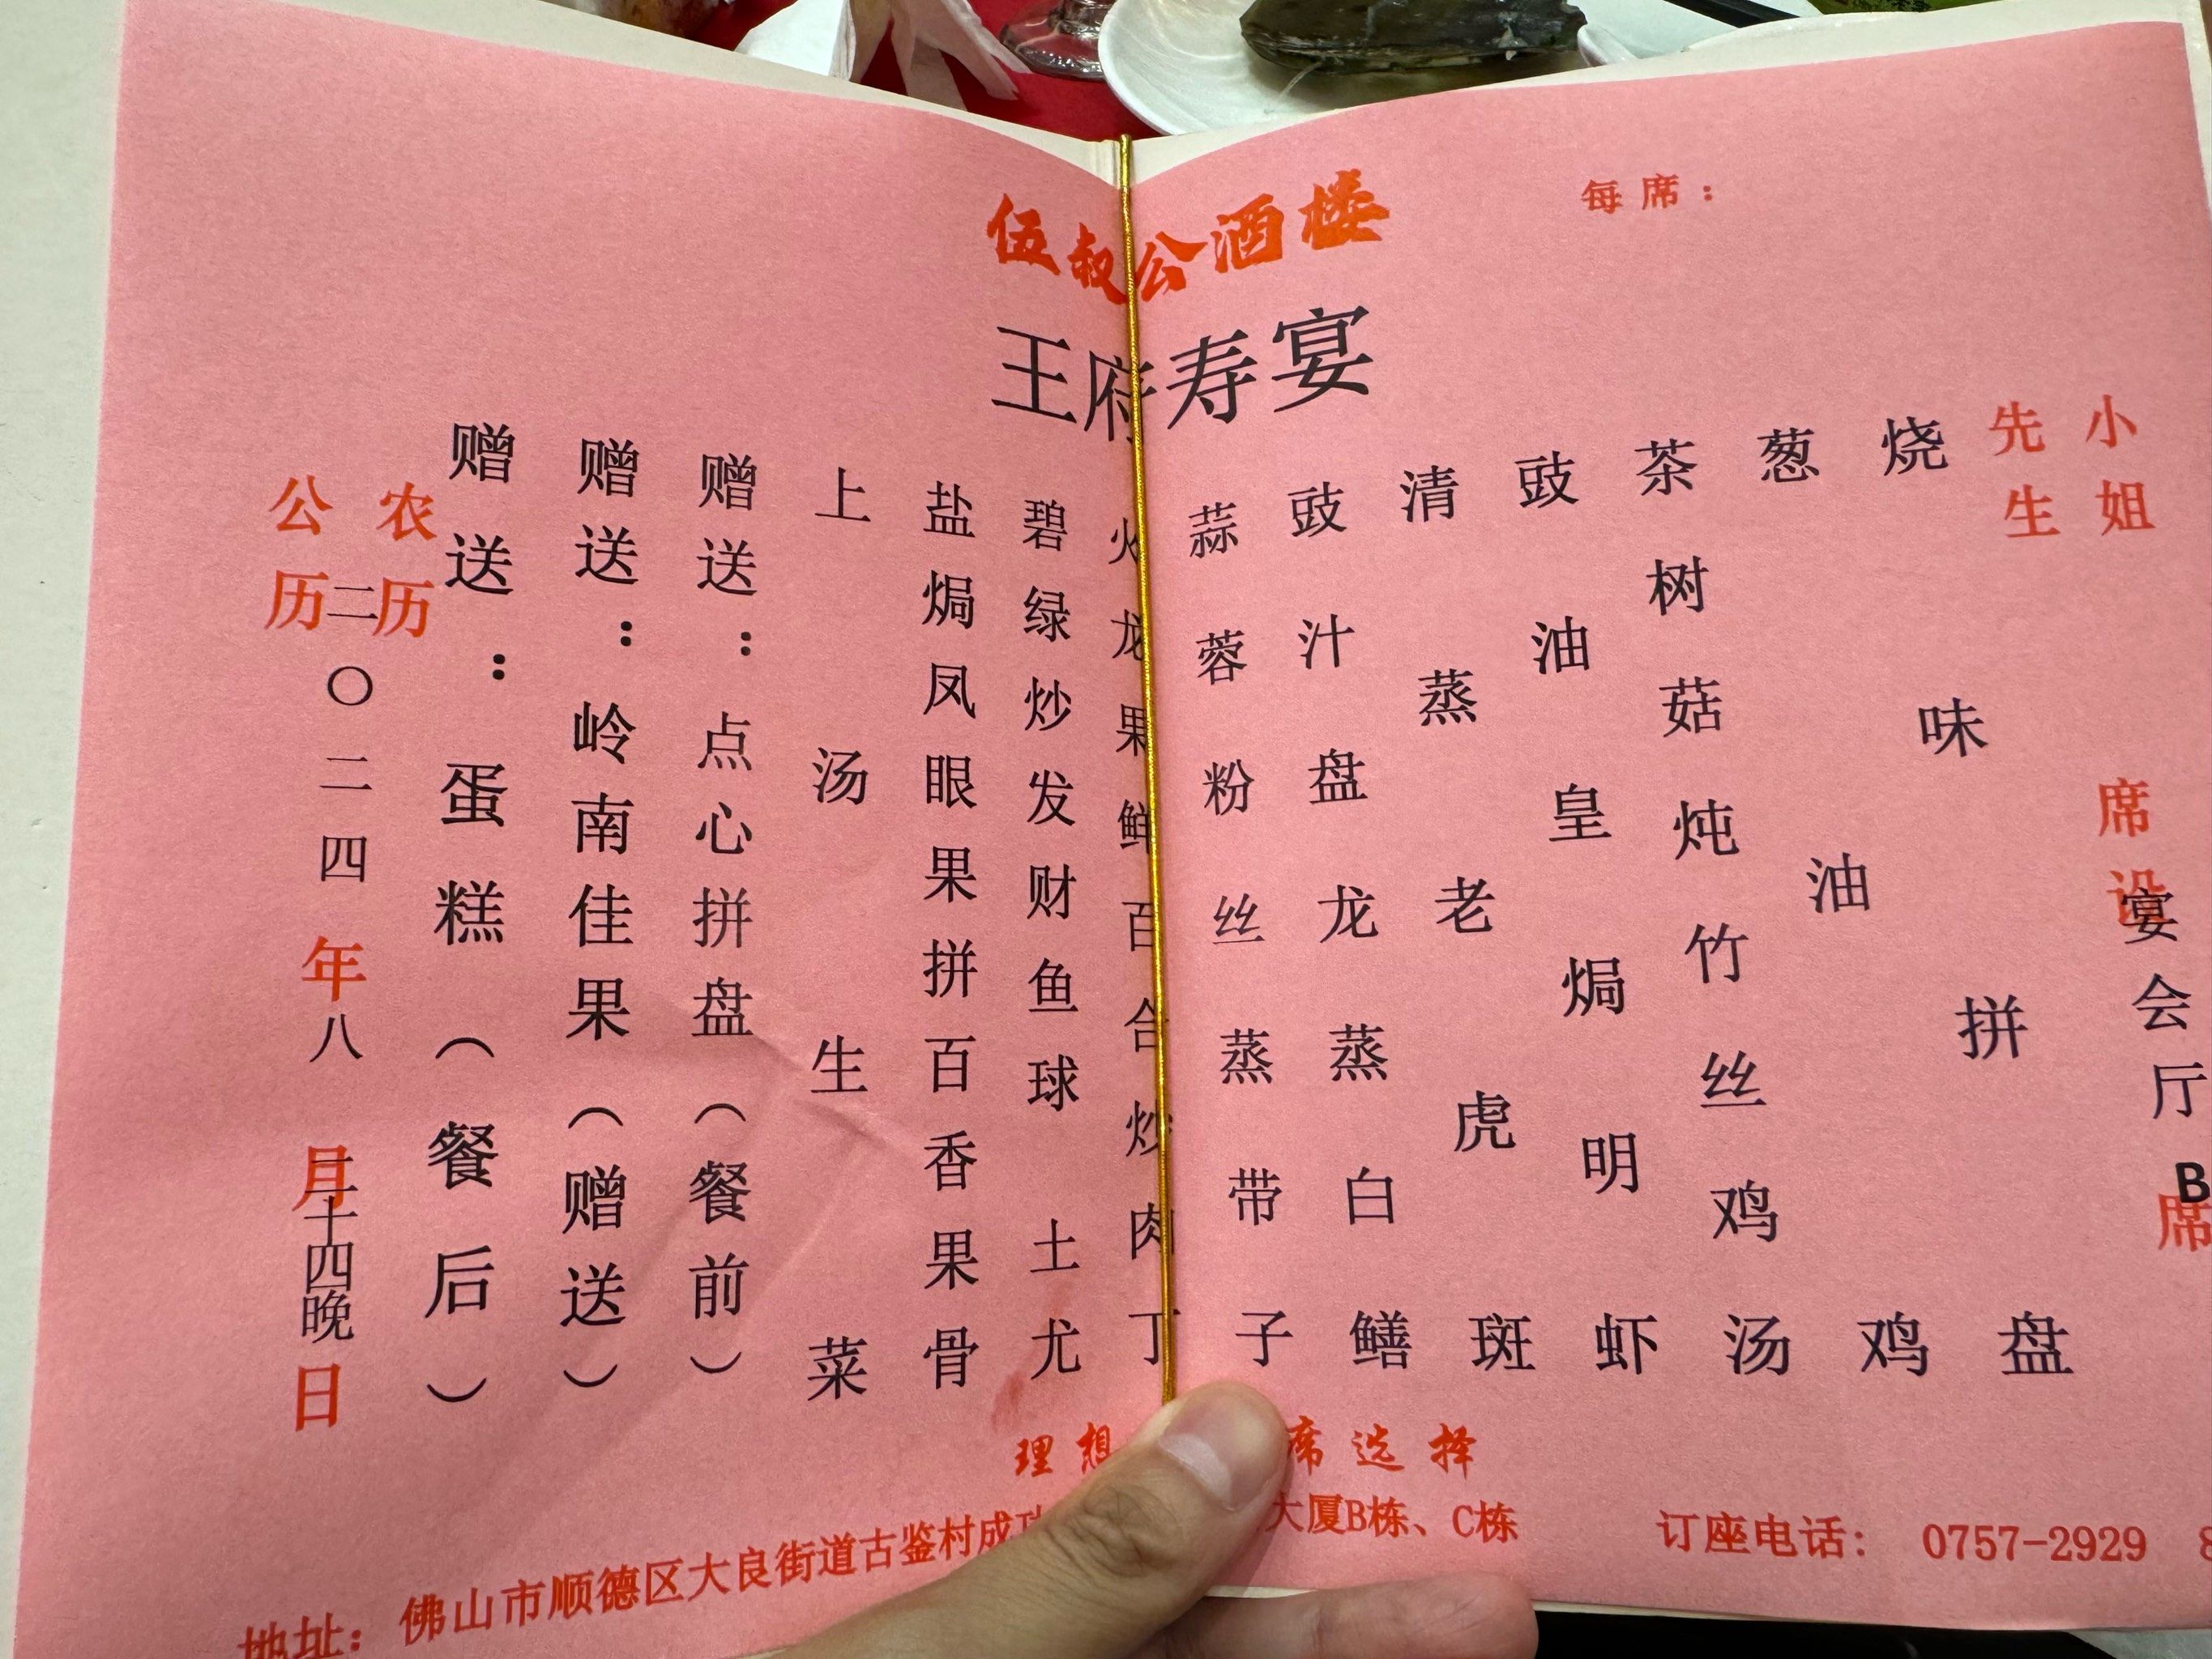 伍叔公酒楼
每席：
王府寿宴
小姐
先生
席设 宴会厅B 席
烧味拼盘
葱油鸡
茶树菇炖竹丝鸡汤
豉油皇焗明虾
清蒸老虎斑
豉汁盘龙蒸白鳝
蒜蓉粉丝蒸带子
火龙果鲜百合炒肉丁
碧绿炒发财鱼球 土尤
盐焗凤眼果拼百香果骨
上汤生菜
赠送：点心拼盘（餐前）
赠送：岭南佳果（赠送）
赠送：蛋糕（餐后）
农历
公历
二〇二四年八月二十四晚日
理想 席选择
地址：佛山市顺德区大良街道古鉴村成 大厦B栋、C栋
订座电话： 0757-2929